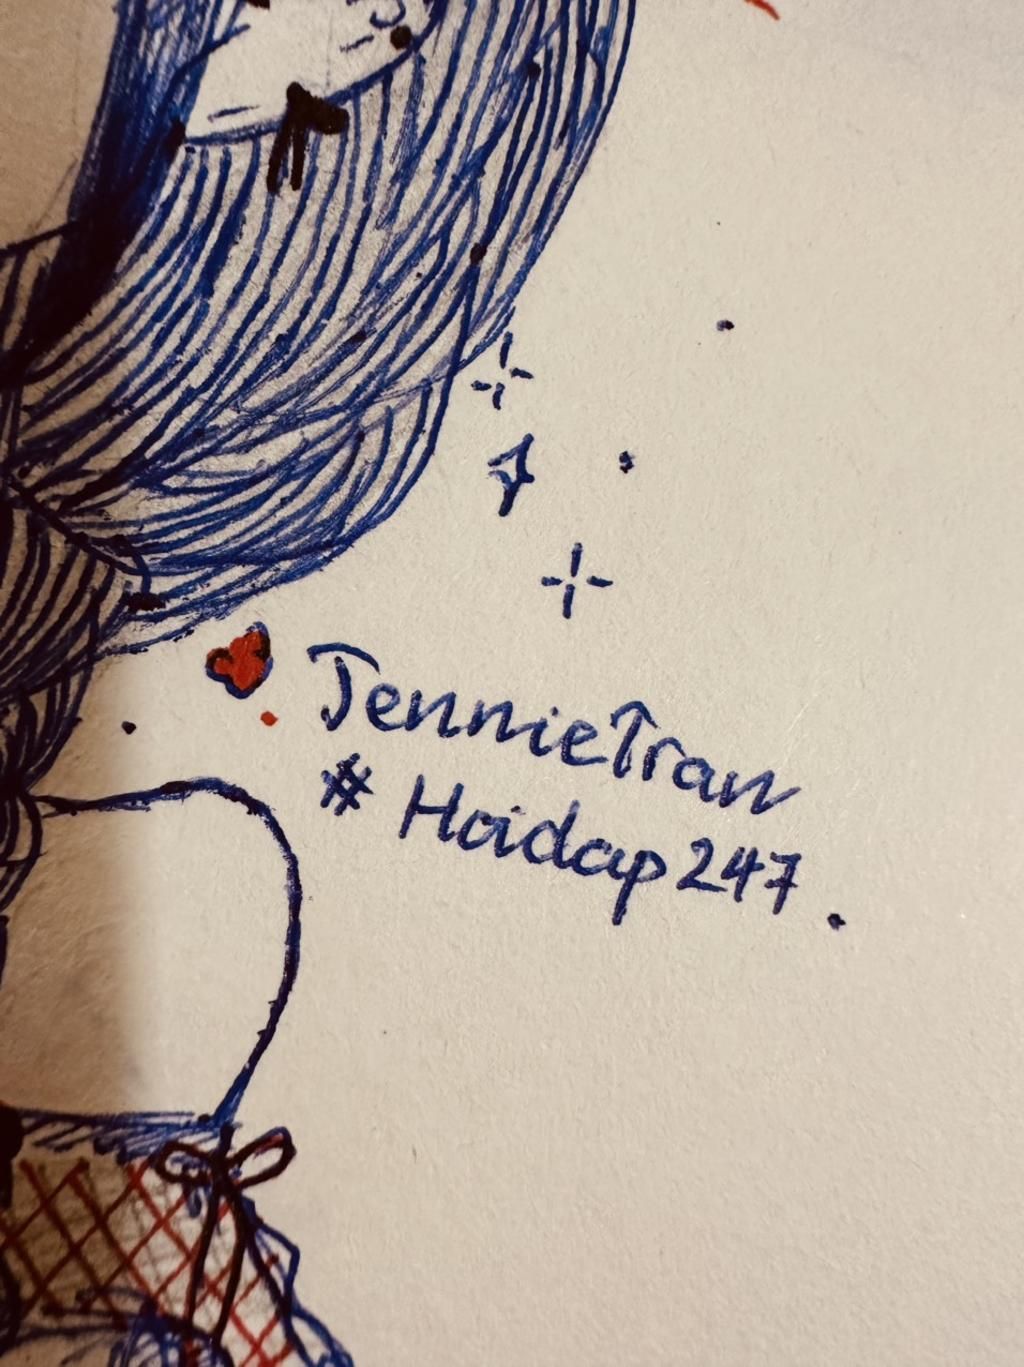 JennieTran
# Hoidap247.